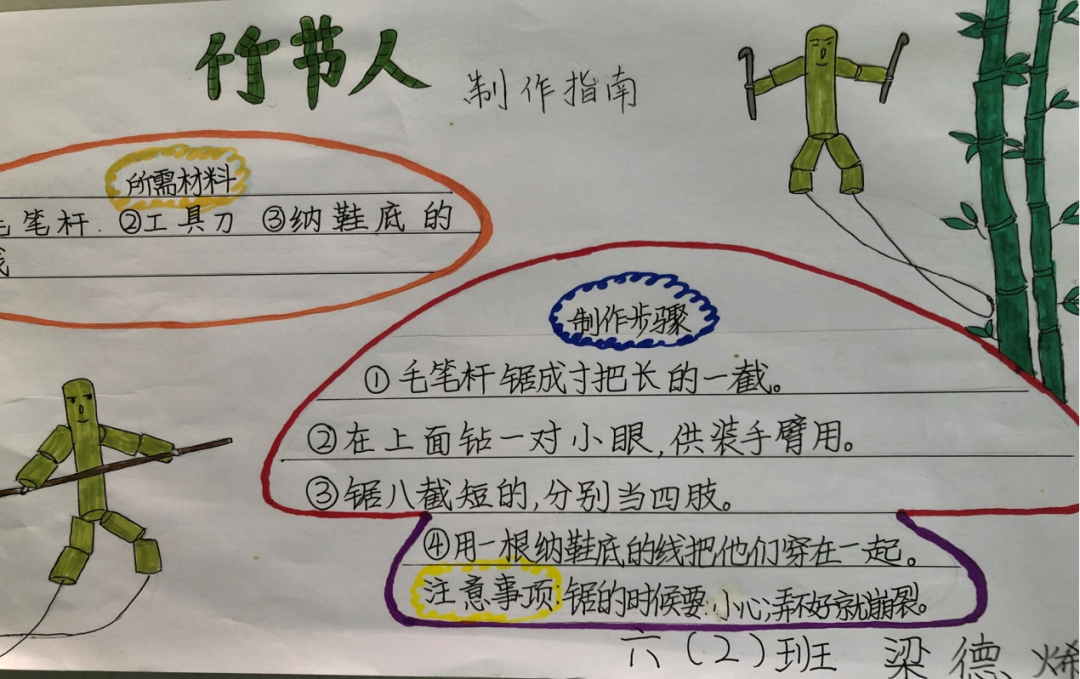 竹节人
制作指南
所需材料
毛笔杆.②工具刀 ③纳鞋底的
线
制作步骤
①毛笔杆锯成寸把长的一截。
②在上面钻一对小眼,供装手臂用。
③锯八截短的,分别当四肢。
④用一根纳鞋底的线把他们穿在一起。
注意事项:锯的时候要小心;弄不好就崩裂。
六(2)班 梁德烯